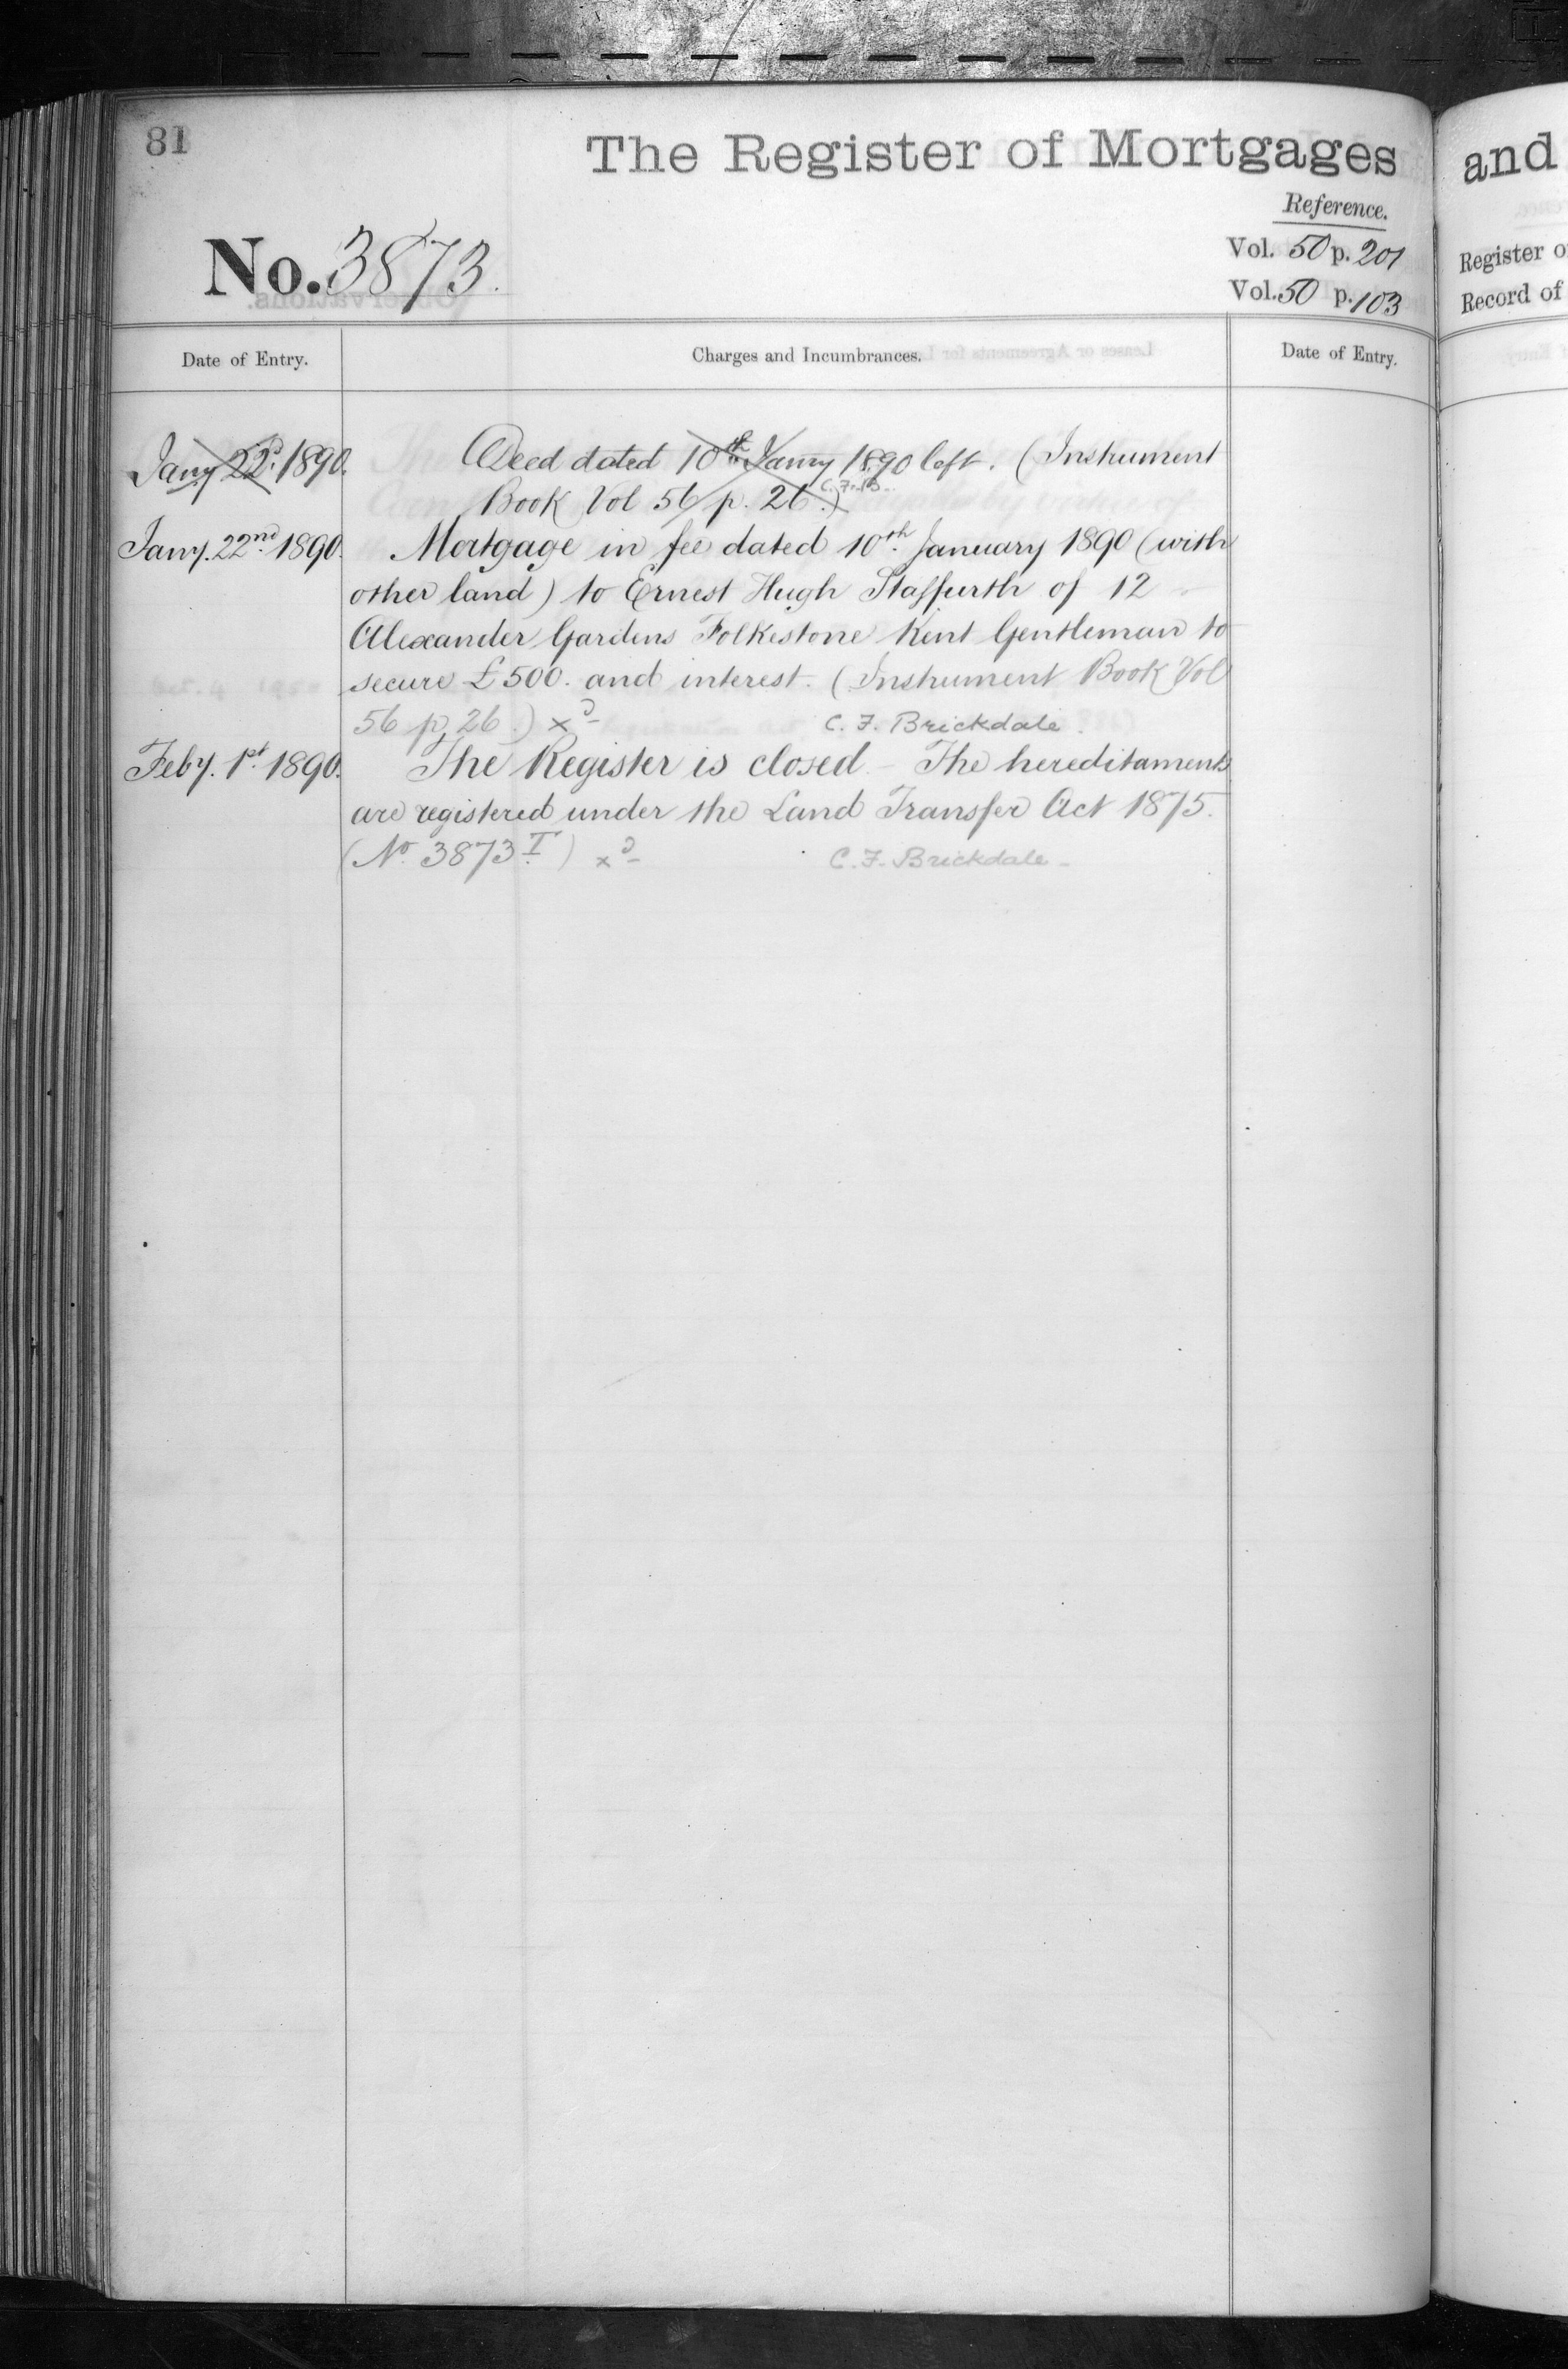 81
The Register of Mortgages
Reference.
No. 3873.
Vol. 50 p. 201
Vol. 50 p. 103
Date of Entry.
Charges and Incumbrances.
Date of Entry.
Jany 22d. 1890.
Deed dated 10th Jany 1890 left. (Instrument
Book Vol 56 p. 26.) C.F.B.
Jany. 22nd. 1890.
Mortgage in fee dated 10th. January 1890 (with
other land) to Ernest Hugh Staffurth of 12
Alexander Gardens Folkestone Kent Gentleman to
secure £500. and interest. (Instrument Book Vol
56 p. 26.) xd C. F. Brickdale.
Feby. 1st. 1890.
The Register is closed – The hereditaments
are registered under the Land Transfer Act 1875.
(No. 3873 T) xd C. F. Brickdale –
and
Register o
Record of